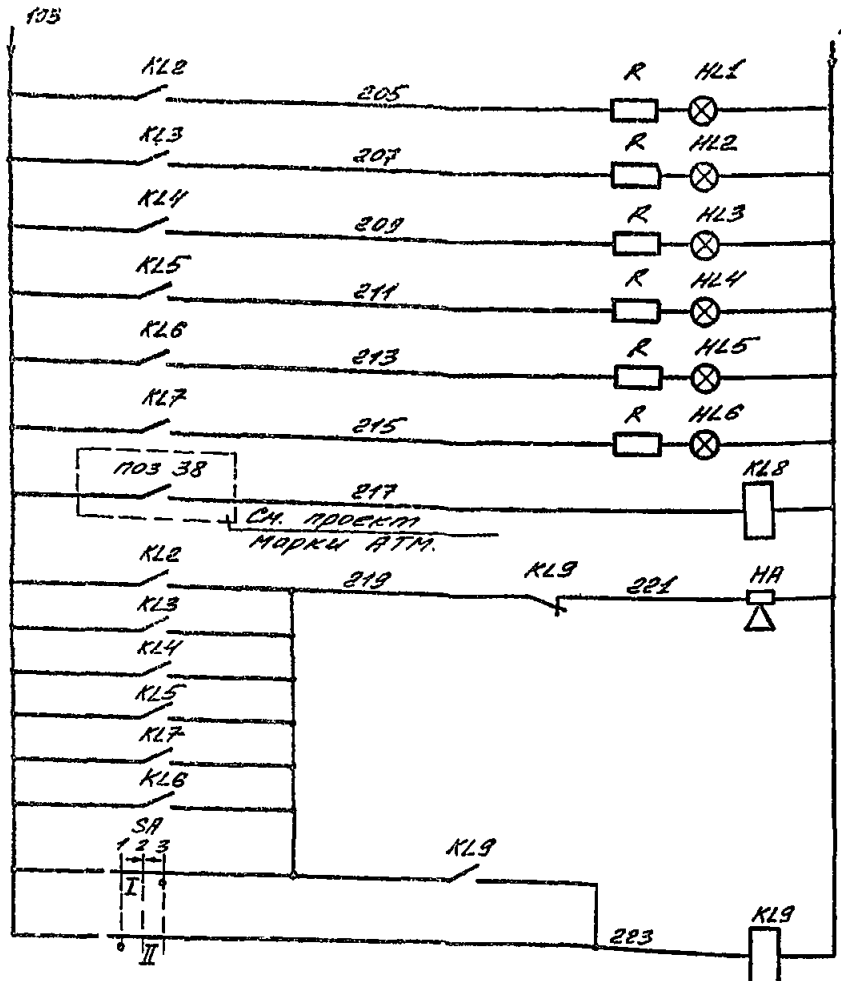 KL2
205
R
HL1
KL3
207
R
HL2
KL4
209
R
HL3
KL5
211
R
HL4
KL6
213
R
HL5
KL7
215
R
HL6
поз 38
217
KL8
См. проект
марки АТМ.
KL2
219
KL9
221
HA
KL3
KL4
KL5
KL7
KL6
SA
1 2 3
I
KL9
II
223
KL9